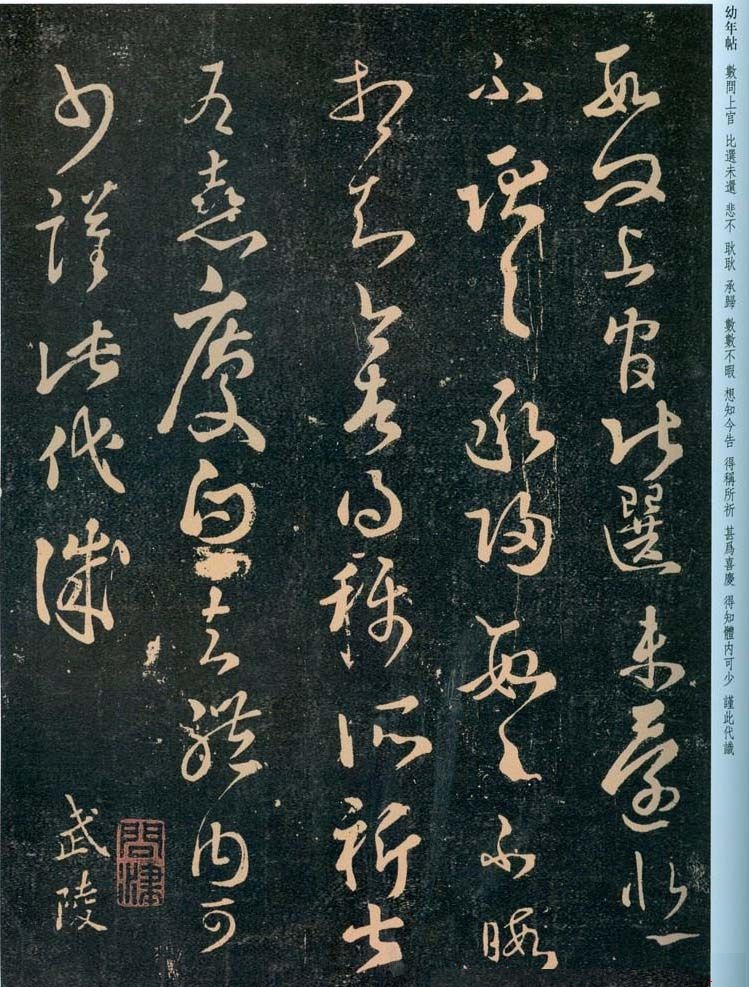 幼年帖 數問上官 比選未還 悲不 耿耿 承歸 數數不暇 想知今告 得稱所祈 甚爲喜慶 得知體內可少 謹此代識
數問上官比選未還悲
不耿〻承歸數〻不暇
想知今告得稱所祈甚
爲喜慶知體內可
少謹此代識
武陵